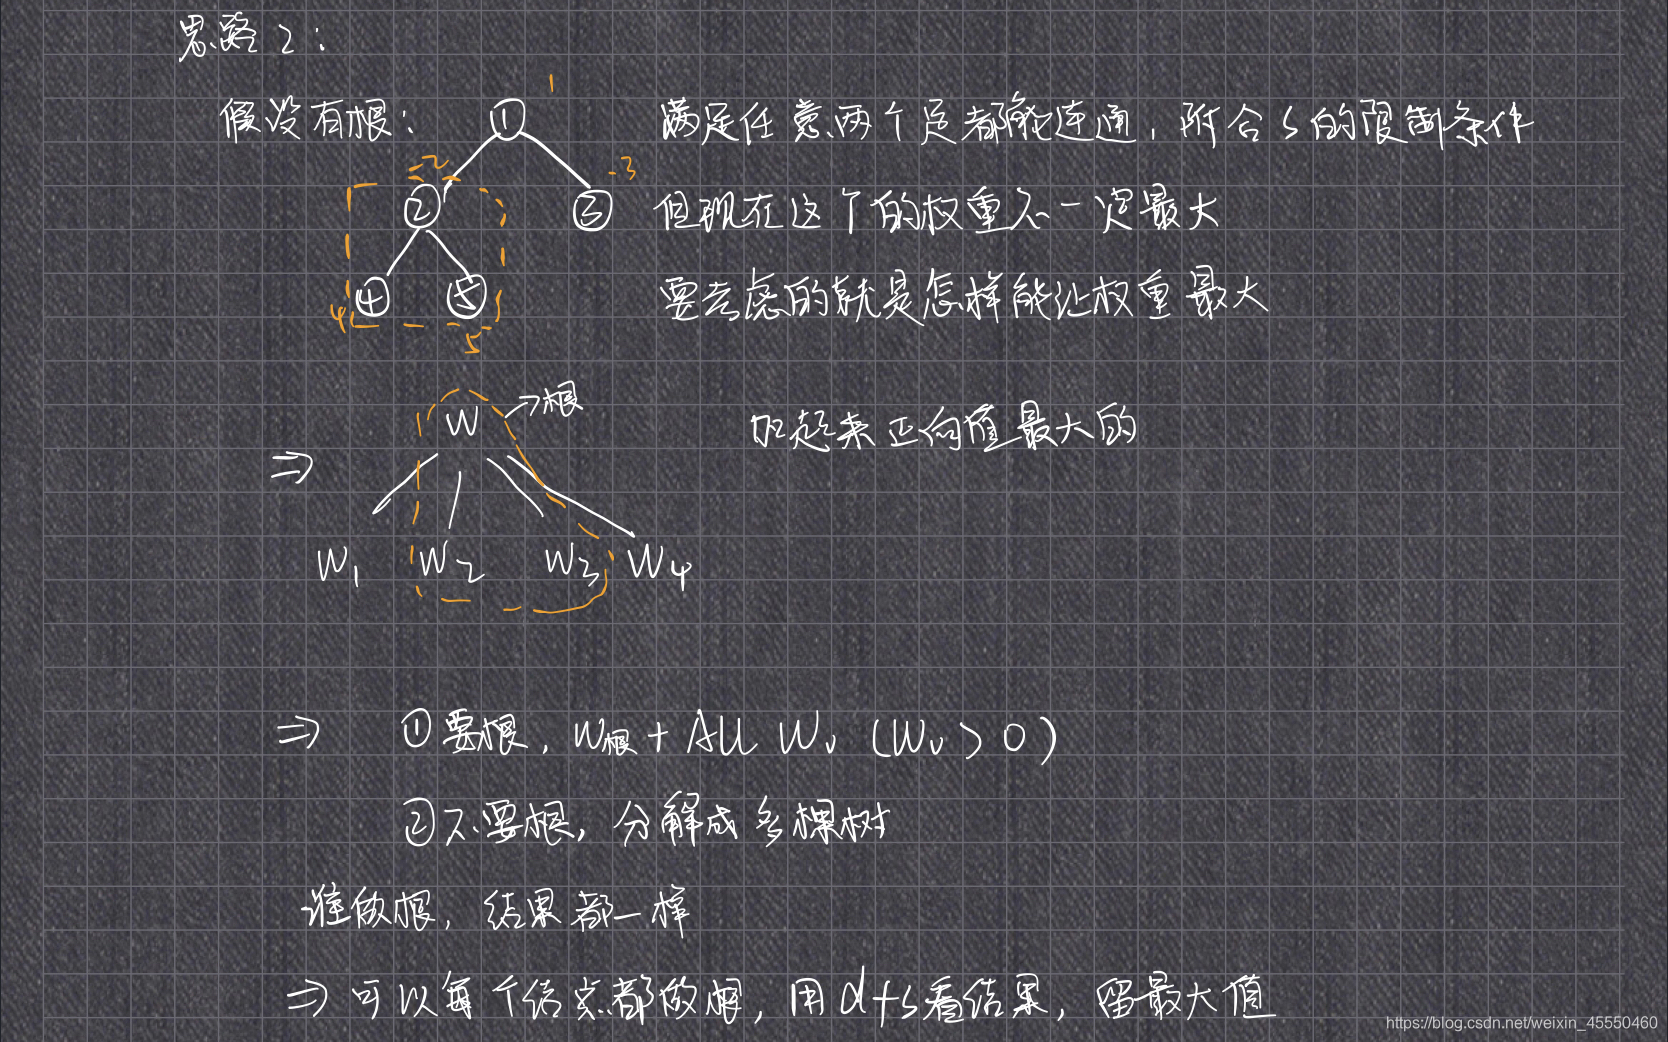 思路2：
假设有根：
① 1
满足任意两个点都能连通，附合S的限制条件
② -2
③ -3
但现在这个的权重不一定最大
④ 4
⑤ 5
要考虑的就是怎样能让权重最大
⇒ W →根
加起来正向值最大的
W₁ W₂ W₃ W₄
⇒ ①要根，W根 + All Wᵥ (Wᵥ > 0)
②不要根，分解成多棵树
谁做根，结果都一样
⇒ 可以每个结点都做根，用dfs看结果，留最大值
https://blog.csdn.net/weixin_45550460